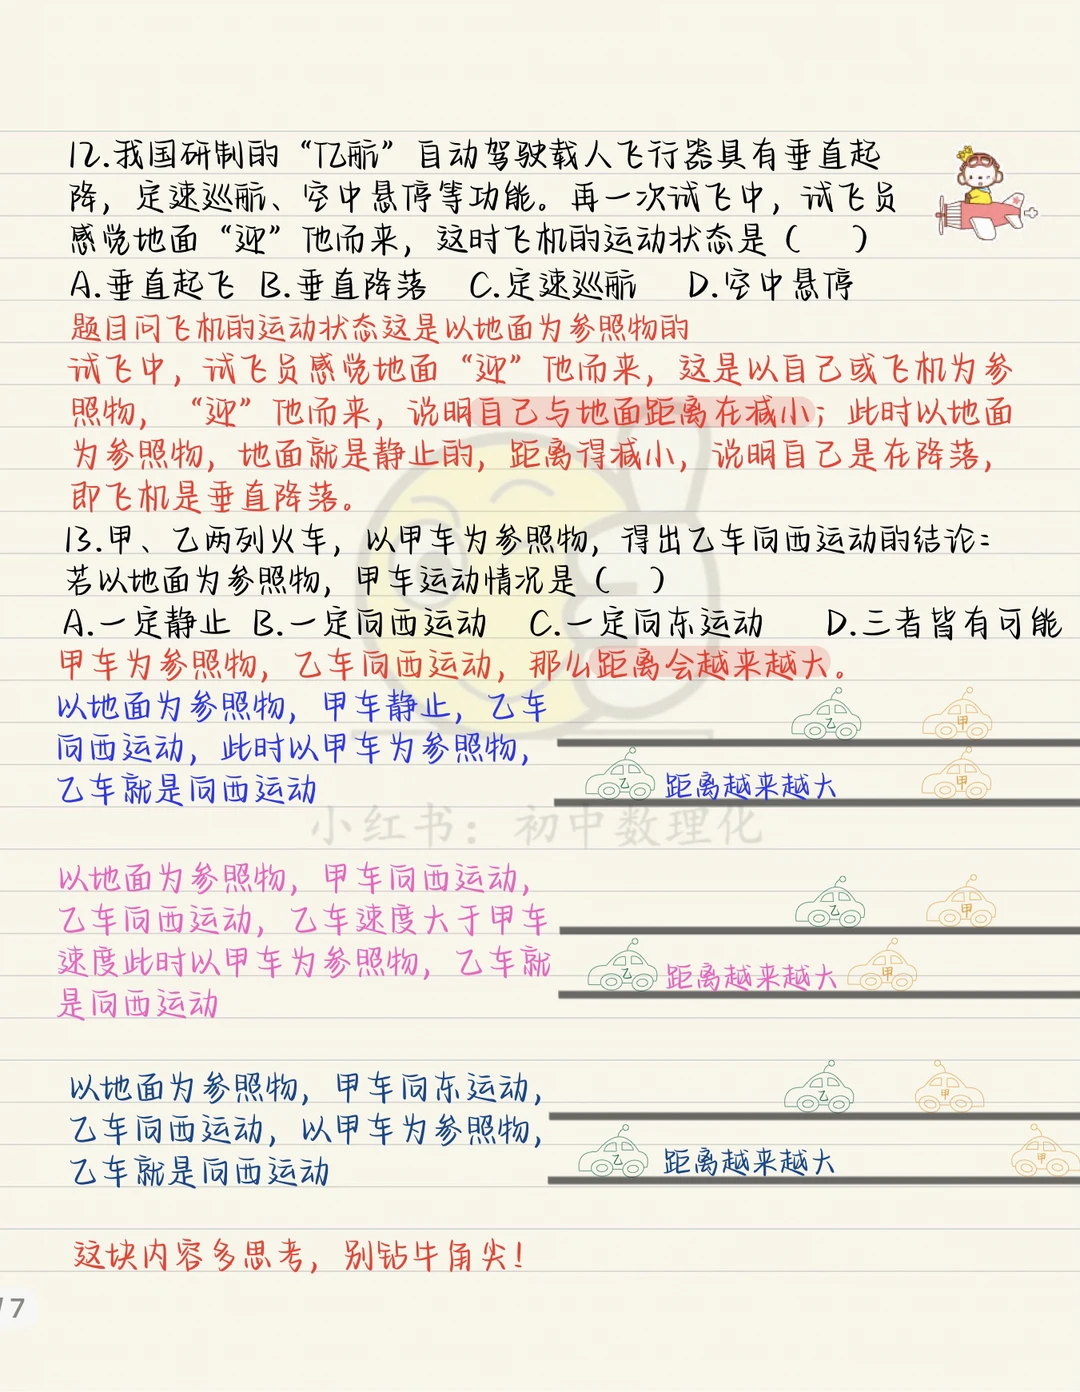 12.我国研制的“亿航”自动驾驶载人飞行器具有垂直起
降，定速巡航、空中悬停等功能。再一次试飞中，试飞员
感觉地面“迎”他而来，这时飞机的运动状态是（ ）
A.垂直起飞 B.垂直降落 C.定速巡航 D.空中悬停
题目问飞机的运动状态这是以地面为参照物的
试飞中，试飞员感觉地面“迎”他而来，这是以自己或飞机为参
照物，“迎”他而来，说明自己与地面距离在减小；此时以地面
为参照物，地面就是静止的，距离得减小，说明自己是在降落，
即飞机是垂直降落。
13.甲、乙两列火车，以甲车为参照物，得出乙车向西运动的结论：
若以地面为参照物，甲车运动情况是（ ）
A.一定静止 B.一定向西运动 C.一定向东运动 D.三者皆有可能
甲车为参照物，乙车向西运动，那么距离会越来越大。
以地面为参照物，甲车静止，乙车
向西运动，此时以甲车为参照物，
乙车就是向西运动
乙 甲
乙 距离越来越大 甲
小红书：初中数理化
以地面为参照物，甲车向西运动，
乙车向西运动，乙车速度大于甲车
速度此时以甲车为参照物，乙车就
是向西运动
乙 甲
乙 距离越来越大 甲
以地面为参照物，甲车向东运动，
乙车向西运动，以甲车为参照物，
乙车就是向西运动
乙 甲
乙 距离越来越大 甲
这块内容多思考，别钻牛角尖！
/7